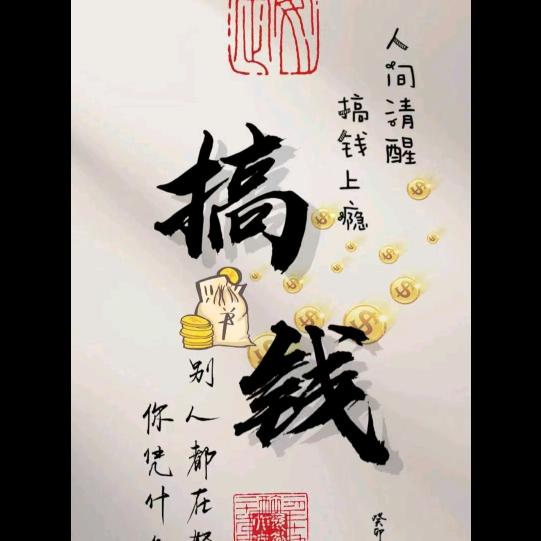 人间清醒
搞钱上瘾
搞钱
别人都在
你凭什
癸卯